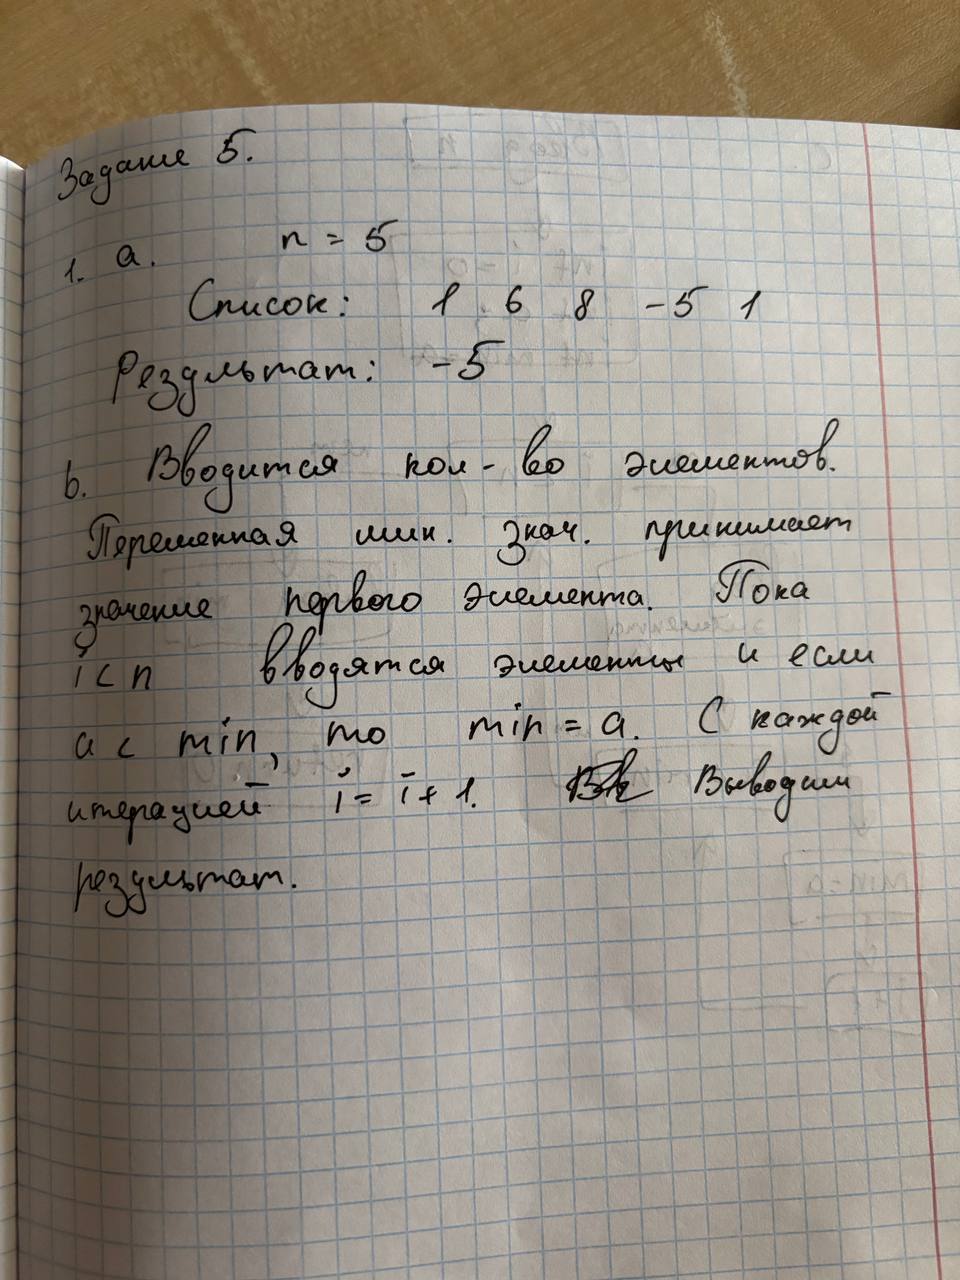 Задание 5.
1. a. n = 5
Список: 1 6 8 -5 1
Результат: -5
b. Вводится кол-во элементов.
Переменная мин. знач. принимает
значение первого элемента. Пока
i < n вводятся элементы и если
a < min, то min = a. С каждой
итерацией i = i + 1. Выводим
результат.